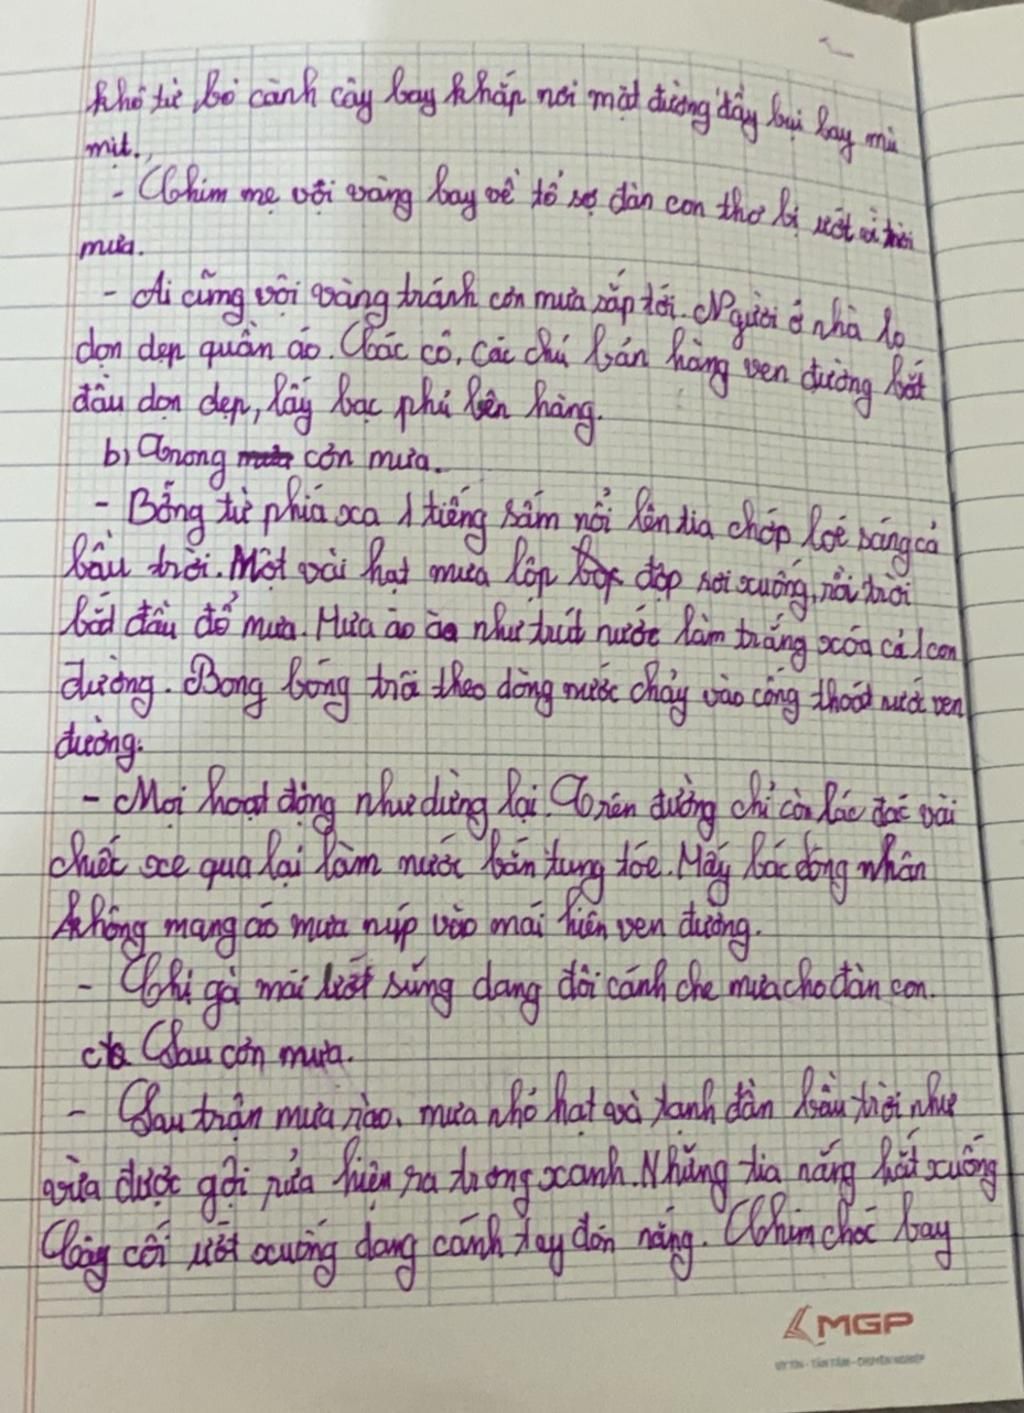 khô từ bỏ cành cây bay khắp nơi mặt đường đầy bụi bay mù
mịt.
- Chim mẹ vội vàng bay về tổ sợ đàn con thơ bị ướt vì trời
mưa.
- Ai cũng vội vàng tránh cơn mưa sắp tới. Người ở nhà lo
dọn dẹp quần áo. Các cô, các chú bán hàng ven đường bắt
đầu dọn dẹp, lấy bạc phủ lên hàng.
b) Trong cơn mưa.
- Bỗng từ phía xa 1 tiếng sấm nổi lên tia chớp loé sáng cả
bầu trời. Một vài hạt mưa lộp độp rơi xuống, rồi trời
bắt đầu đổ mưa. Mưa ào ào như trút nước làm trắng xóa cả 1 con
đường. Bong bóng trôi theo dòng nước chảy vào cống thoát nước ven
đường.
- Mọi hoạt động như dừng lại. Trên đường chỉ còn lác đác vài
chiếc xe qua lại làm nước bắn tung tóe. Mấy bác công nhân
không mang áo mưa núp vào mái hiên ven đường.
- Chị gà mái ướt sũng dang đôi cánh che mưa cho đàn con.
c Sau cơn mưa.
- Sau trận mưa rào, mưa nhỏ hạt và tạnh dần bầu trời như
vừa được gội rửa hiện ra trong xanh. Những tia nắng hắt xuống
Cây cối ướt xuống dang cánh tay đón nắng. Chim chóc bay
MGP
UY TÍN - TẬN TÂM - CHUYÊN NGHIỆP